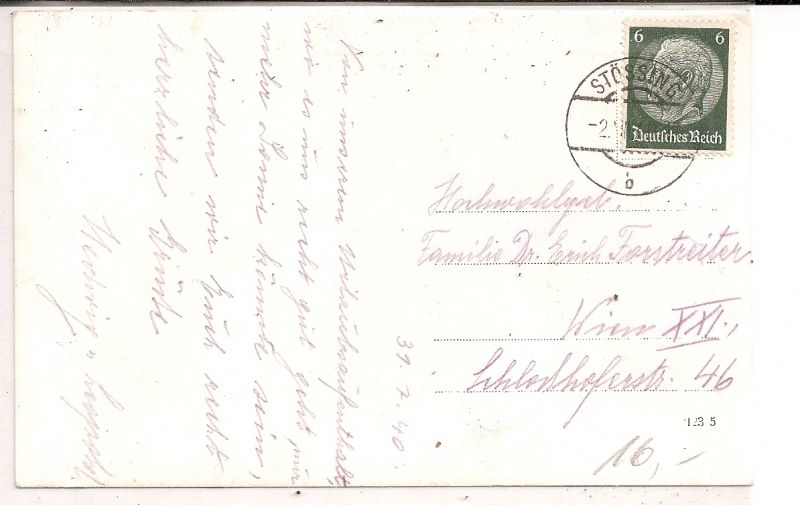 Von unserem Urlaubsaufenthalt,
wo es uns recht gut geht, nur
mehr Sonne könnte sein,
senden wir Euch recht
herzliche Grüße
Hedwig u. Leopold
31.7.40.
6 6
Deutsches Reich
STÖSSING
-2.
b
Hochwohlgeb.
Familie Dr. Erich Forstreiter
Wien XXI.,
Schloßhoferstr. 46
123 5
16,-